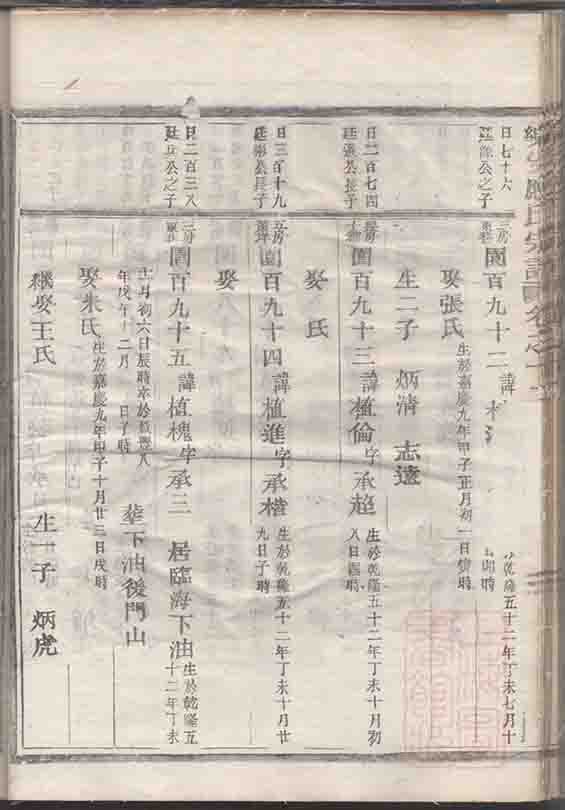 應氏宗譜
日七十六
公之子
園百九十二諱
乾隆五十二年丁未七月十
時
娶張氏生於嘉慶九年甲子正月初一日寅時
生二子 炳清 志遠
日二百七四
廷張公長子
園百九十三諱植倫字承超生於乾隆五十二年丁未十月初
八日酉時
娶 氏
日三百十九
公長子
園百九十四諱植進字承檀生於乾隆五十二年丁未十月廿
九日子時
娶
日二百三八
公之子
二房
園百九十五諱植槐字承三 居臨海下油生於乾隆五
十二年丁未
十月初六日辰時卒於咸豐八
年戊午十二月 日子時 葬下油後門山
娶朱氏生於嘉慶九年甲子十月廿三日戌時
繼娶王氏 生一子 炳虎